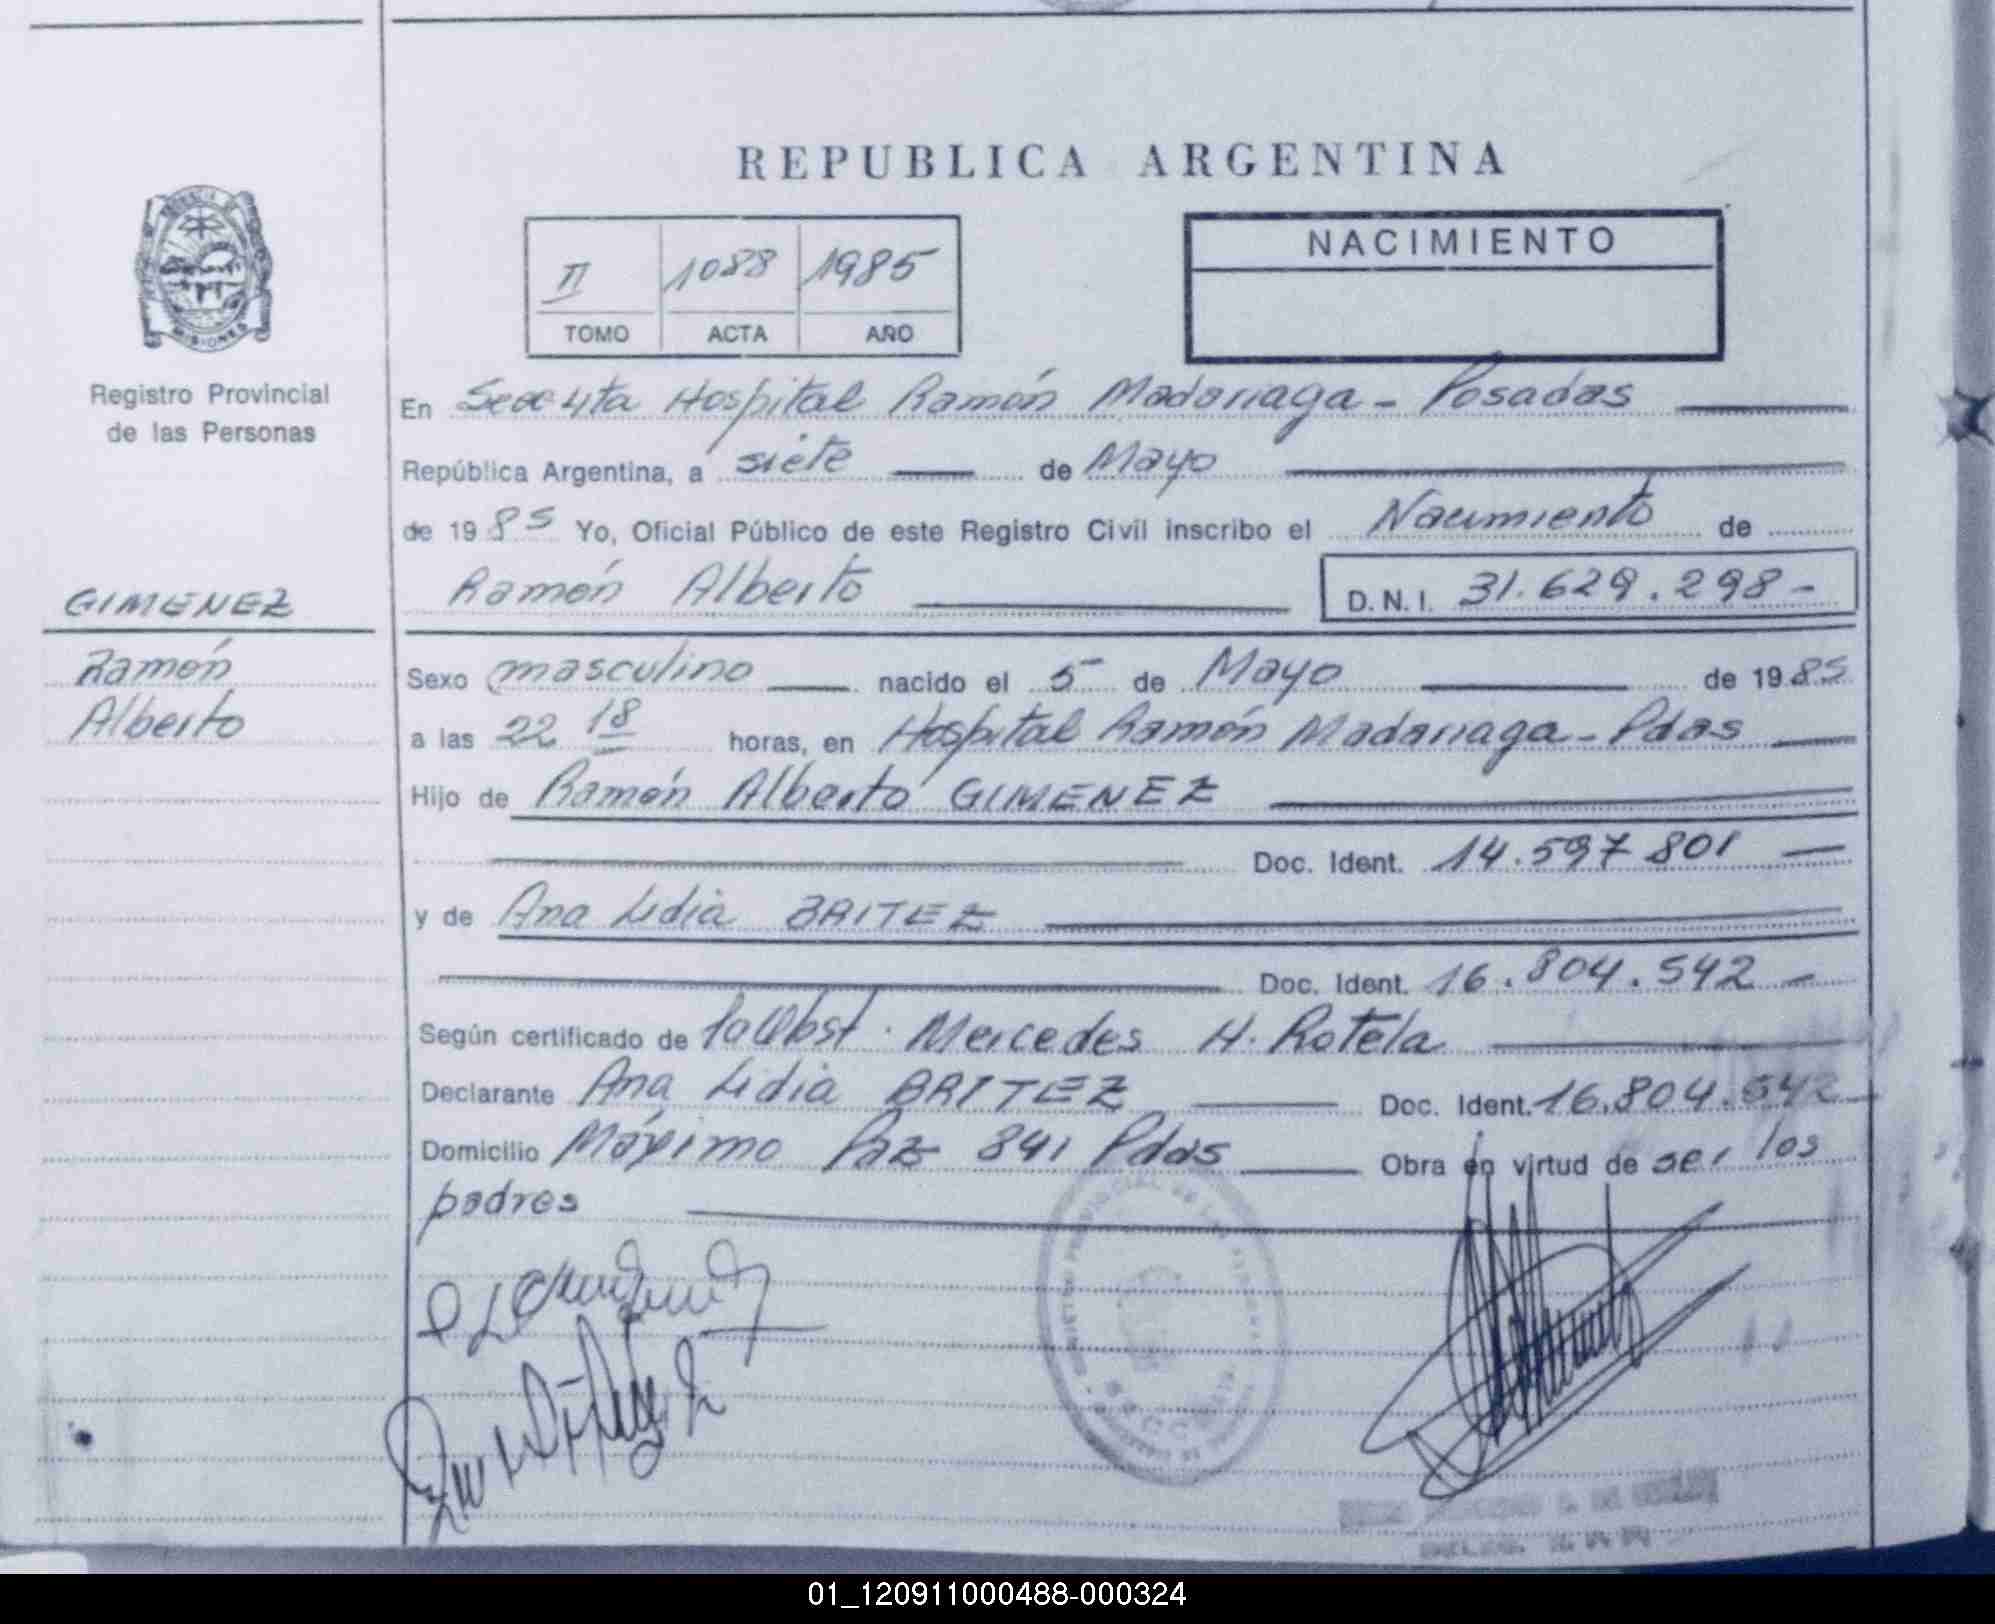 REPUBLICA ARGENTINA
NACIMIENTO
II 1088 1985
TOMO ACTA AÑO
MISIONES
Registro Provincial
de las Personas
GIMENEZ
Ramón
Alberto
En Secc 4ta Hospital Ramón Madariaga - Posadas
República Argentina, a siete de Mayo
de 1985 Yo, Oficial Público de este Registro Civil inscribo el Nacimiento de
Ramón Alberto D.N.I. 31.629.298-
Sexo masculino nacido el 5 de Mayo de 1985
a las 22 18 horas, en Hospital Ramón Madariaga - Pdas
Hijo de Ramón Alberto GIMENEZ
Doc. Ident. 14.597 801
y de Ana Lidia BRITEZ
Doc. Ident. 16.804.542
Según certificado de Mercedes H. Rotela
Declarante Ana Lidia BRITEZ Doc. Ident. 16.804.542
Domicilio Máximo Paz 841 Pdas Obra en virtud de ser los
padres
01_120911000488-000324